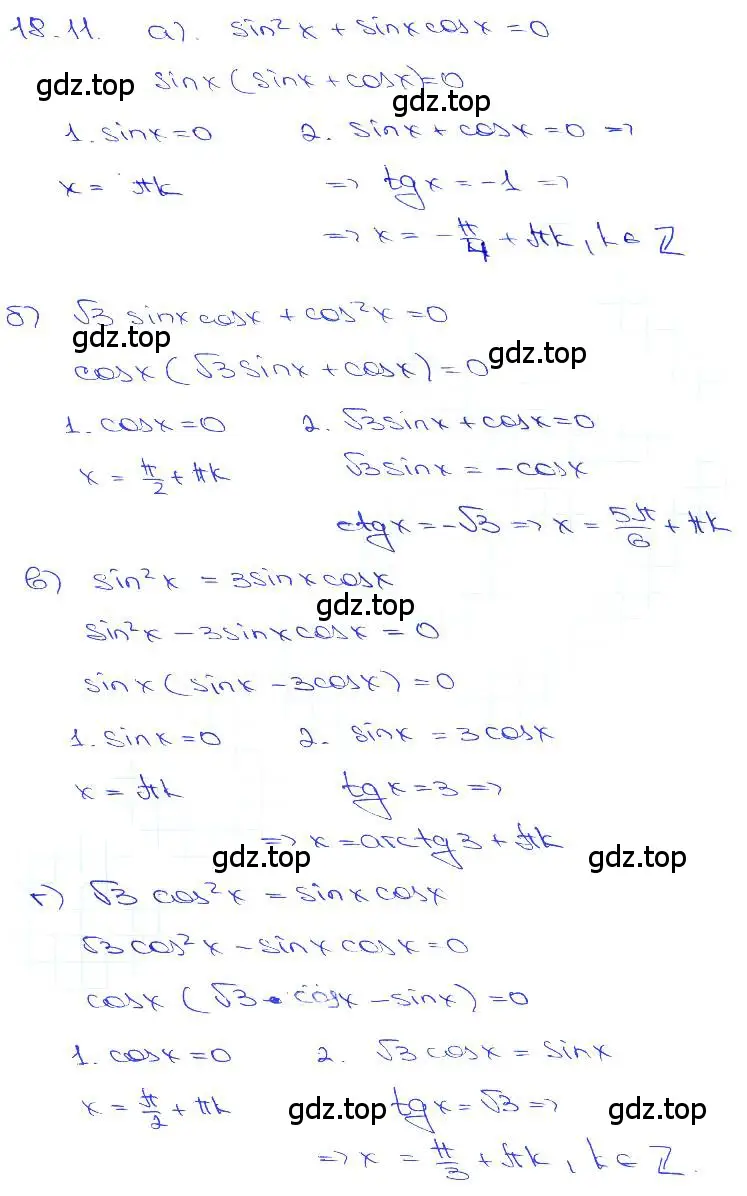 18.11. а). sin²x + sinxcosx = 0
gdz.top sinx(sinx + cosx)=0
gdz.top
1. sinx = 0 2. sinx + cosx = 0 =>
x = πk => tgx = -1 =>
=> x = -π/4 + πk, k ∈ Z
б) √3 sinxcosx + cos²x = 0
gdz.top gdz.top
cosx(√3sinx + cosx) = 0
1. cosx = 0 2. √3sinx + cosx = 0
x = π/2 + πk √3sinx = -cosx
ctgx = -√3 => x = 5π/6 + πk
в) sin²x = 3sinxcosx
gdz.top
sin²x - 3sinxcosx = 0
sinx(sinx - 3cosx) = 0
1. sinx = 0 2. sinx = 3cosx
x = πk tgx = 3 =>
=> x = arctg3 + πk
gdz.top gdz.top
г) √3 cos²x = sinxcosx
√3cos²x - sinxcosx = 0
cosx(√3·cosx - sinx) = 0
1. cosx = 0 2. √3cosx = sinx
x = π/2 + πk gdz.top tgx = √3 => gdz.top
=> x = π/3 + πk, k ∈ Z.